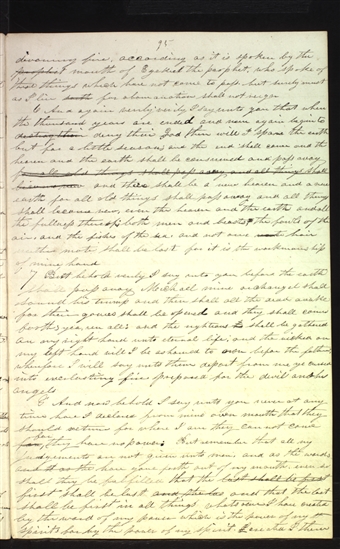 95
devouring fire, according as it is spoken by the
prophet mouth of Ezekiel the prophet, who spoke of
these things which have not come to pass but surely must
as I live for abomination shall not reign
6 And again verily verily I say unto you that when
the thousand years are ended and men again begin to
deny their God then will I spare the earth
but for a little season and the end shall come and the
heaven and the earth shall be consumed and pass away
for all old things shall pass away, and all things shall
and there shall be a new heaven and a new
earth for all old things shall pass away and all things
shall become new, even the heaven and the earth and all
the fullness thereof, both men and beasts the fowls of the
air, and the fishes of the sea and not one hair
neither mote shall be lost for it is the workmanship
of mine hand
7 But behold verily I say unto you before the earth
shall pass away, Michael mine archangel shall
sound his trump and then shall all the dead awake
for their graves shall be opened and they shall come
forth yea, even all and the righteous shall be gathered
on my right hand unto eternal life; and the wicked on
my left hand will I be ashamed to own before the father
wherefore I will say unto them depart from me ye cursed
into everlasting fire prepared for the devil and his
angels
8 And now behold I say unto you never at any
time have I declared from mine own mouth that they
should return for where I am they can not come
for they have no power. But remember that all my
judgements are not given unto men. and as the words
have gone forth out of my mouth even so
shall they be fulfilled that the last shall be first
first shall be last and that the last
shall be first in all things whatsoever I have created
by the word of my power which is the power of my
spirit for by the power of my spirit created I them